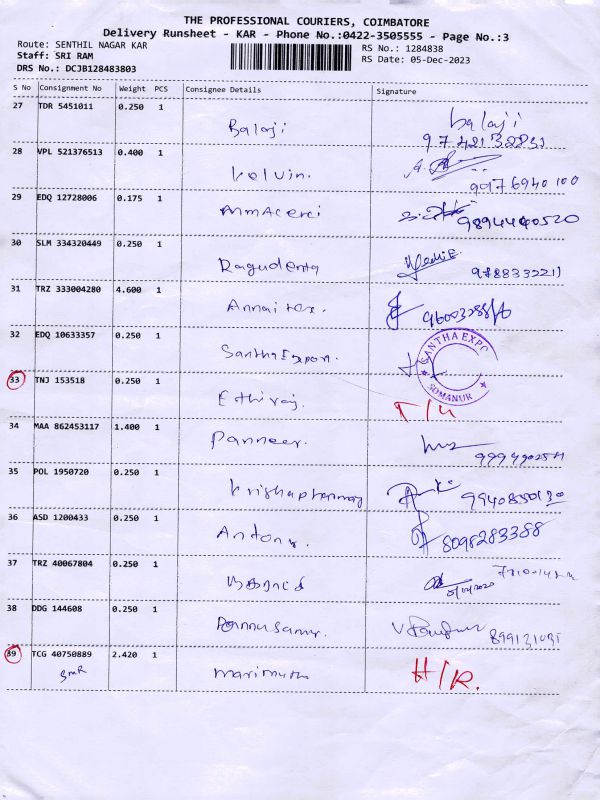 THE PROFESSIONAL COURIERS, COIMBATORE
Delivery Runsheet - KAR - Phone No.:0422-3505555 - Page No.:3
Route: SENTHIL NAGAR KAR
RS No.: 1284838
Staff: SRI RAM
RS Date: 05-Dec-2023
DRS No.: DCJB128483803
S No Consignment No Weight PCS Consignee Details Signature
27 TDR 5451011 0.250 1
Balaji balaji
28 VPL 521376513 0.400 1
kelvin.
29 EDQ 12728006 0.175 1
9894440520
30 SLM 334320449 0.250 1
31 TRZ 333004280 4.600 1
Annaitex.
32 EDQ 10633357 0.250 1
Santha Expon. SANTHA EXPO SOMANUR
33 TNJ 153518 0.250 1
Ethiraj.
34 MAA 862453117 1.400 1
Panneer.
35 POL 1950720 0.250 1
36 ASD 1200433 0.250 1
Antony. 8098283388
37 TRZ 40067804 0.250 1
38 DDG 144608 0.250 1
Ponnusamy.
39 TCG 40750889 2.420 1
Marimuthu H/R.